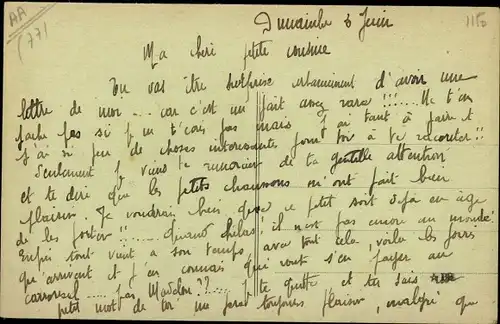 AA
(77)
1150
Dimanche 6 Juin
Ma cheri petite cousine
Tu vas être surprise certainement d'avoir une
lettre de moi ... car c'est un fait assez rare !!! ... Ne t'en
fache pas si je n t'ecris pas mais j ai tant à faire et
j'ai si peu de choses interessantes pour toi à te raconter !!
Seulement je viens te remercier de ta gentille attention
et te dire que les petits chaussons m'ont fait bien
plaisir. Je voudrais bien que ce petit soit déjà en age
de les porter !! ...... Quand helas ! il n'est pas encore au monde !
Enfin tout vient a son temps avec tout cela, voila les jours
qu'arrivent et j'en connais qui vont s'en payer au
carrousel .... pas Madelon ?? .... Je te quitte et tu sais
petit mot de toi me ferat toujours plaisir, malgré que